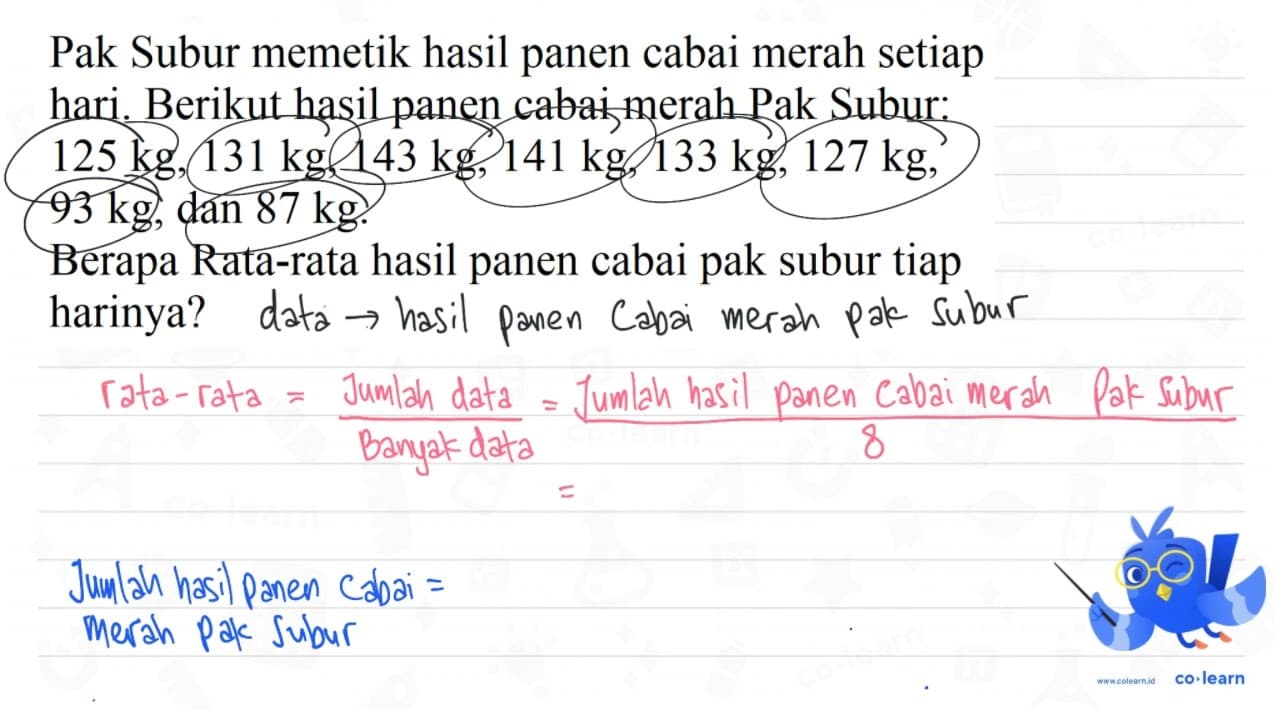 Pak Subur memetik hasil panen cabai merah setiap
hari. Berikut hasil panen cabai merah Pak Subur:
125 kg, 131 kg, 143 kg, 141 kg, 133 kg, 127 kg,
93 kg, dan 87 kg.
Berapa Rata-rata hasil panen cabai pak subur tiap
harinya? data → hasil panen Cabai merah pak Subur
rata-rata = Jumlah data = Jumlah hasil panen Cabai merah Pak Subur
Banyak data 8
=
Jumlah hasil panen Cabai =
merah Pak Subur
www.colearn.id co·learn